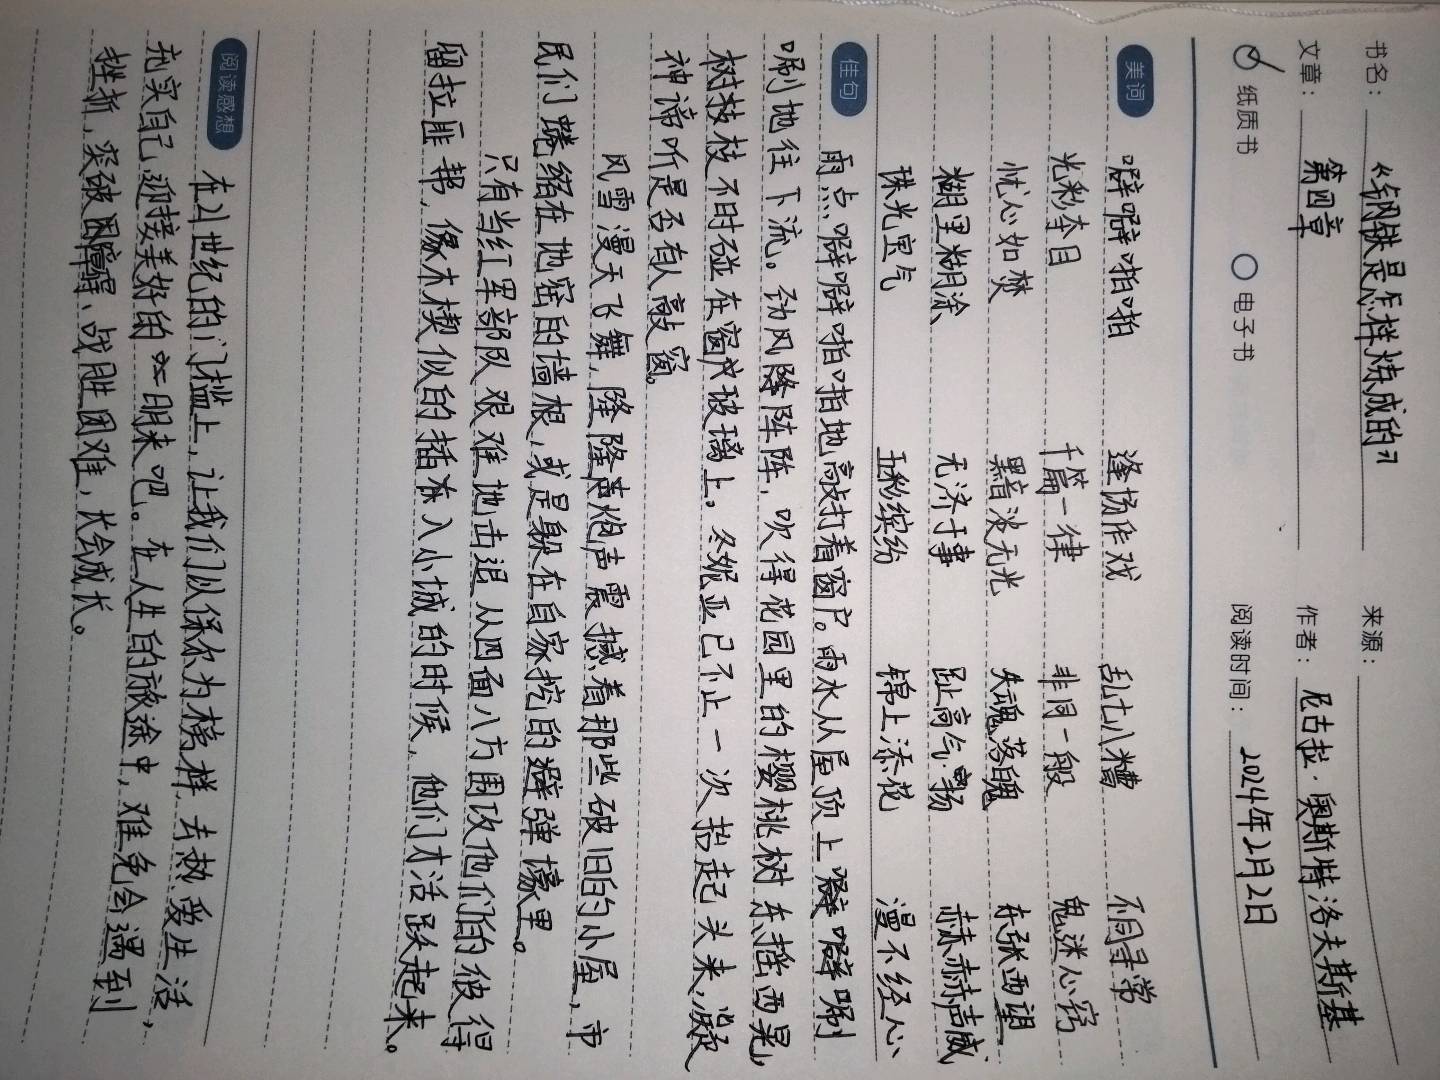 书名：《钢铁是怎样炼成的》 来源：
文章：第四章 作者：尼古拉·奥斯特洛夫斯基
纸质书 电子书 阅读时间：2024年2月2日
美词
噼噼啪啪 逢场作戏 乱七八糟 不同寻常
光彩夺目 千篇一律 非同一般 鬼迷心窍
忧心如焚 黑暗淡无光 失魂落魄 东张西望
糊里糊涂 无济于事 趾高气扬 赫赫声威
珠光宝气 五彩缤纷 锦上添花 漫不经心
佳句
雨点噼噼啪啪地敲打着窗户。雨水从屋顶上噼噼唰
唰地往下流。劲风阵阵，吹得花园里的樱桃树东摇西晃，
树枝枝不时碰在窗玻璃上。冬妮亚已不止一次抬起头来，凝
神谛听是否有人敲窗。
风雪漫天飞舞，隆隆炮声震撼着那些破旧的小屋，市
民们蜷缩在地窑的墙根，或是躲在自家挖的避弹壕里。
只有当红军部队艰难地击退从四面八方围攻他们的彼得
留拉匪帮，像木楔似的插入小城的时候，他们才活跃起来。
阅读感想
在21世纪的门槛上，让我们以保尔为榜样，去热爱生活，
充实自己，迎接美好的明来吧。在人生的旅途中，难免会遇到
挫折，突破困障碍、战胜困难，才会成长。